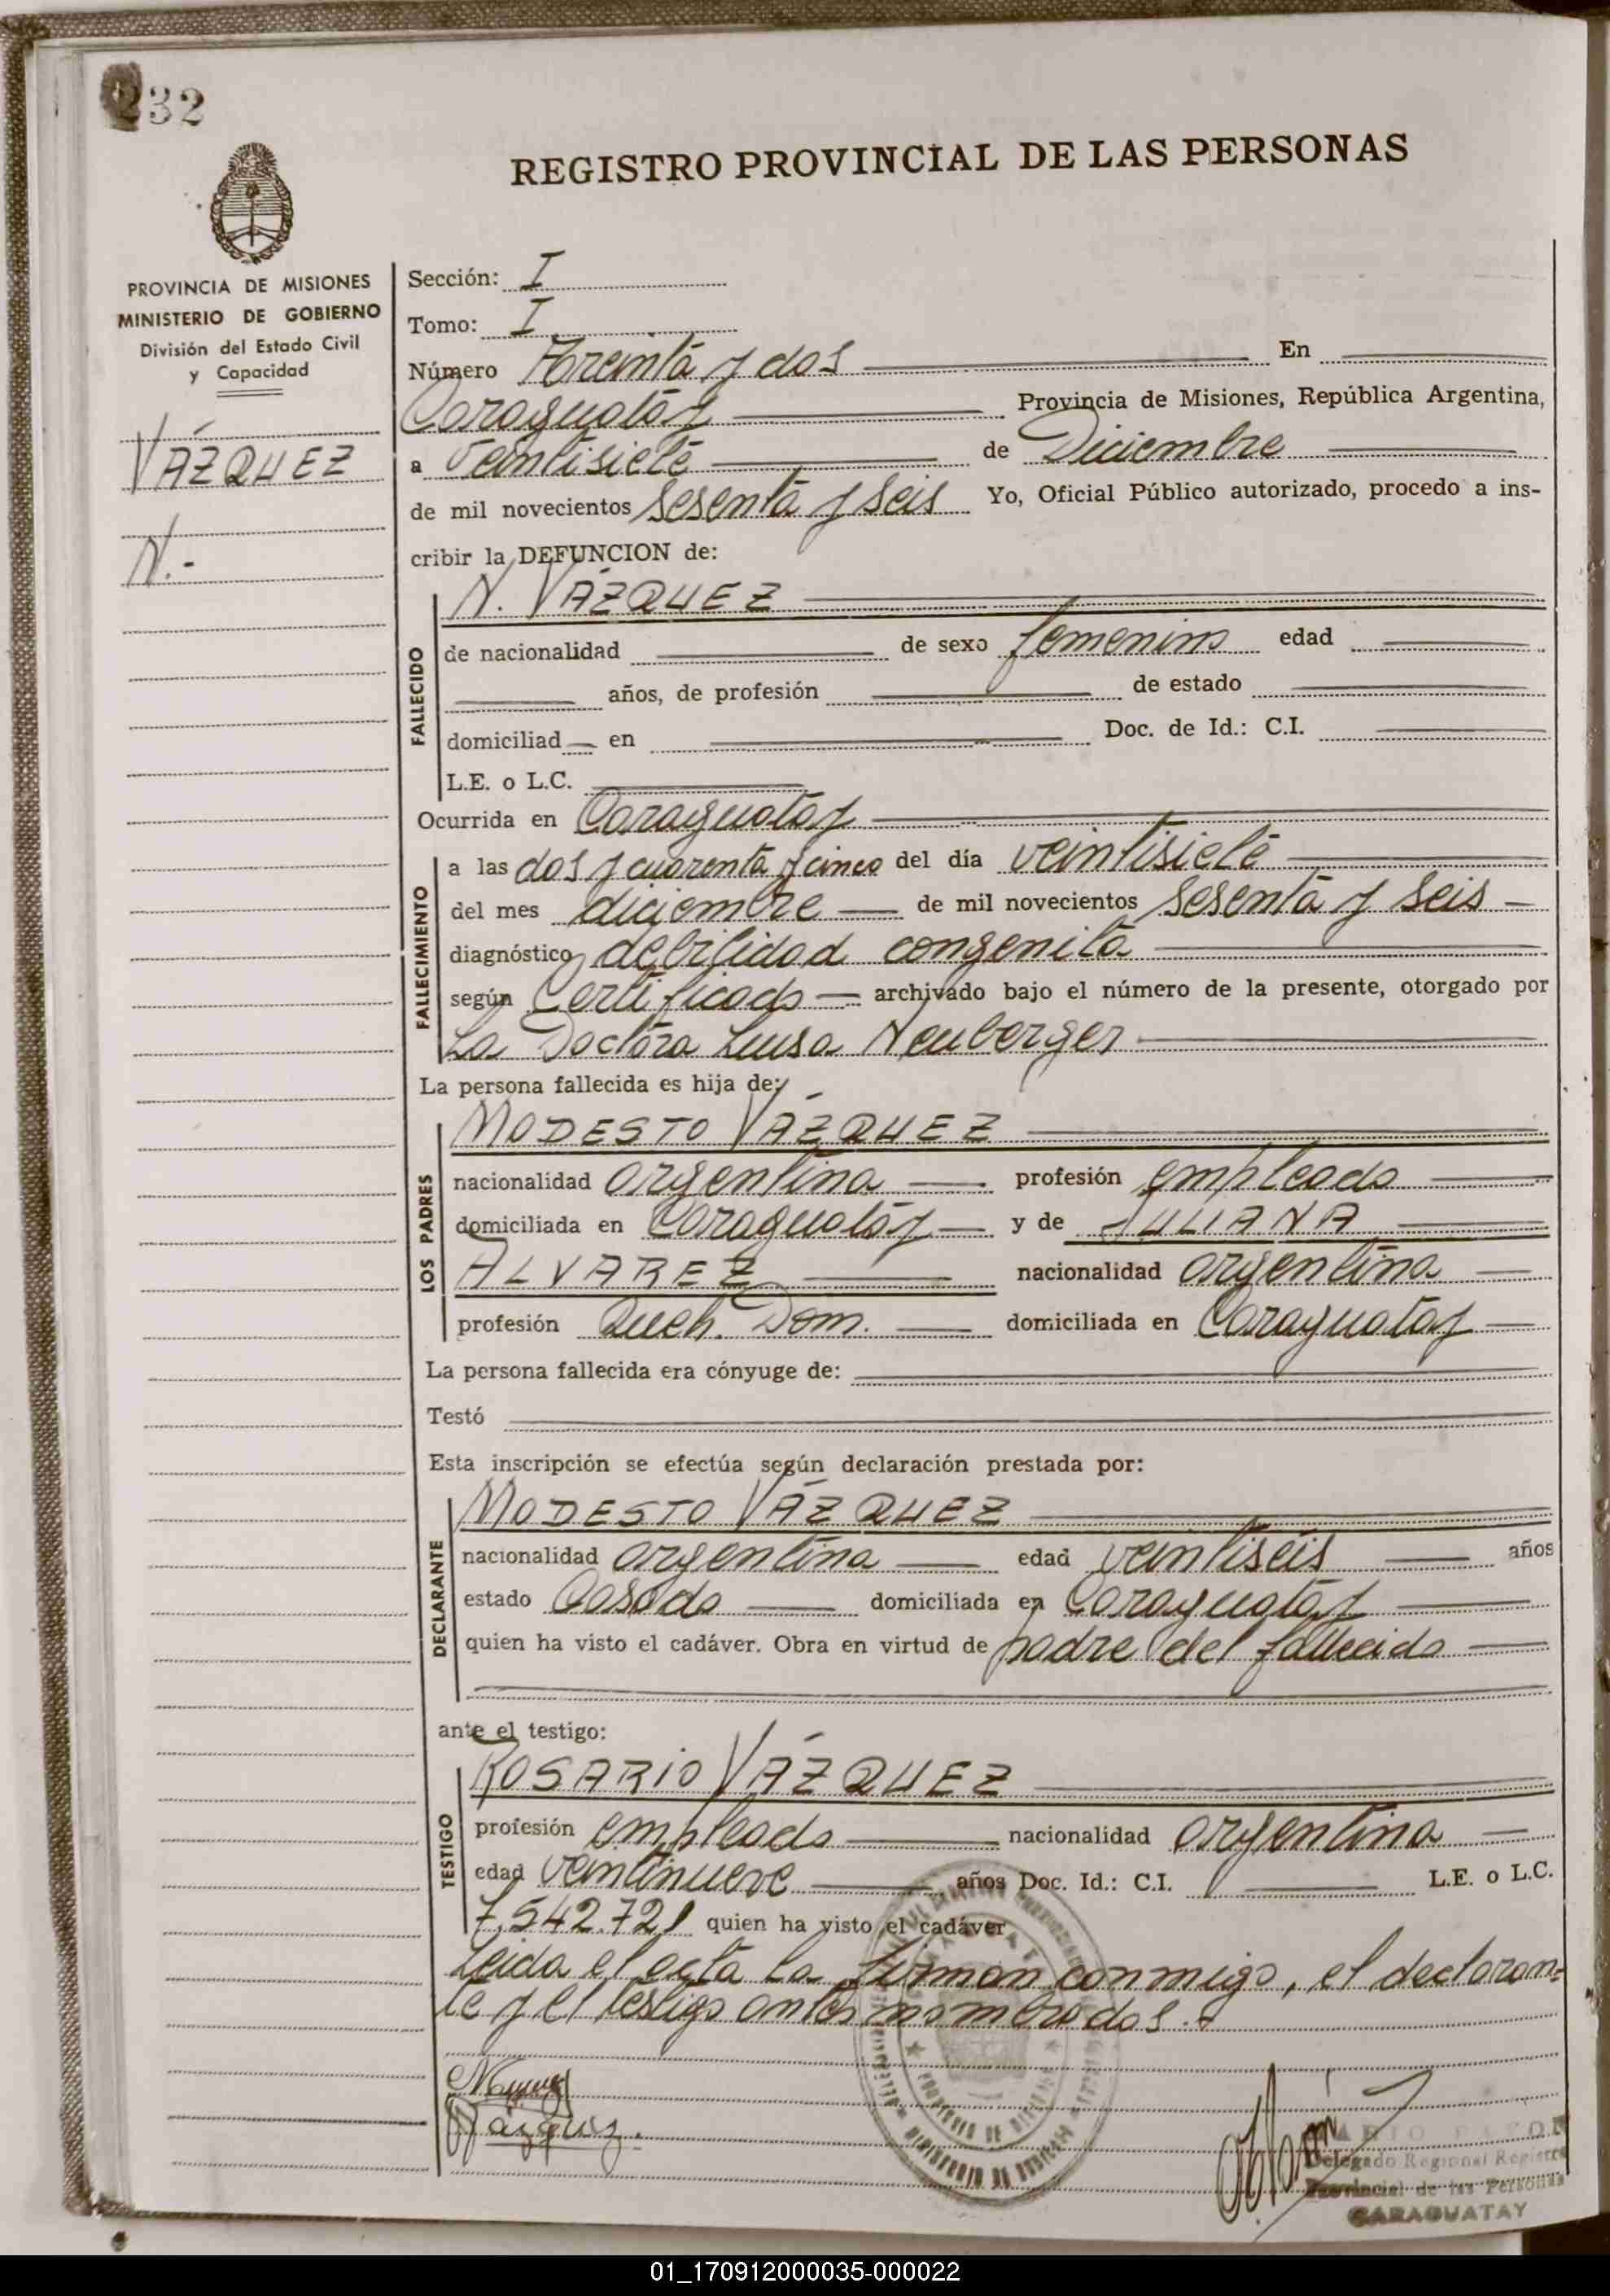 32
REGISTRO PROVINCIAL DE LAS PERSONAS
PROVINCIA DE MISIONES
MINISTERIO DE GOBIERNO
División del Estado Civil
y Capacidad
VÁZQUEZ
N.-
Sección: I
Tomo: I
Número Treinta y dos En
Caraguatay Provincia de Misiones, República Argentina,
a Veintisiete de Diciembre
de mil novecientos sesenta y seis Yo, Oficial Público autorizado, procedo a ins-
cribir la DEFUNCION de:
N. VÁZQUEZ
FALLECIDO
de nacionalidad de sexo femenino edad
años, de profesión de estado
domiciliad en Doc. de Id.: C.I.
L.E. o L.C.
Ocurrida en Caraguatay
FALLECIMIENTO
a las dos y cuarenta y cinco del día veintisiete
del mes diciembre de mil novecientos sesenta y seis
diagnóstico debilidad congenita
según Certificado archivado bajo el número de la presente, otorgado por
La Doctora Luisa Neuberger
La persona fallecida es hija de:
LOS PADRES
MODESTO VÁZQUEZ
nacionalidad argentina profesión empleado
domiciliada en Caraguatay y de JULIANA
ALVAREZ nacionalidad argentina
profesión Queh. Dom. domiciliada en Caraguatay
La persona fallecida era cónyuge de:
Testó
Esta inscripción se efectúa según declaración prestada por:
DECLARANTE
MODESTO VÁZQUEZ
nacionalidad argentina edad veintiseis años
estado Casado domiciliada en Caraguatay
quien ha visto el cadáver. Obra en virtud de padre del fallecido
ante el testigo:
TESTIGO
ROSARIO VÁZQUEZ
profesión empleado nacionalidad argentina
edad veintinueve años Doc. Id.: C.I. L.E. o L.C.
7.542.721 quien ha visto el cadáver
Leida el acta la firman conmigo, el declaran-
te y el testigo antes nombrados.-
Vázquez.
Delegado Regional Registro
Provincial de las Personas
CARAGUATAY
01_170912000035-000022